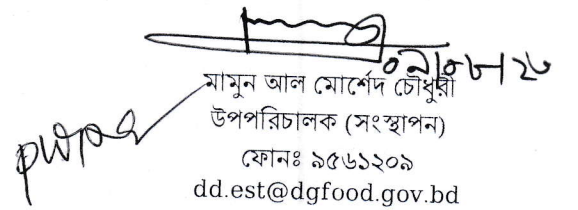 মামুন আল মোর্শেদ চৌধুরী
উপপরিচালক (সংস্থাপন)
ফোনঃ ৯৫৬১২০৯
dd.est@dgfood.gov.bd